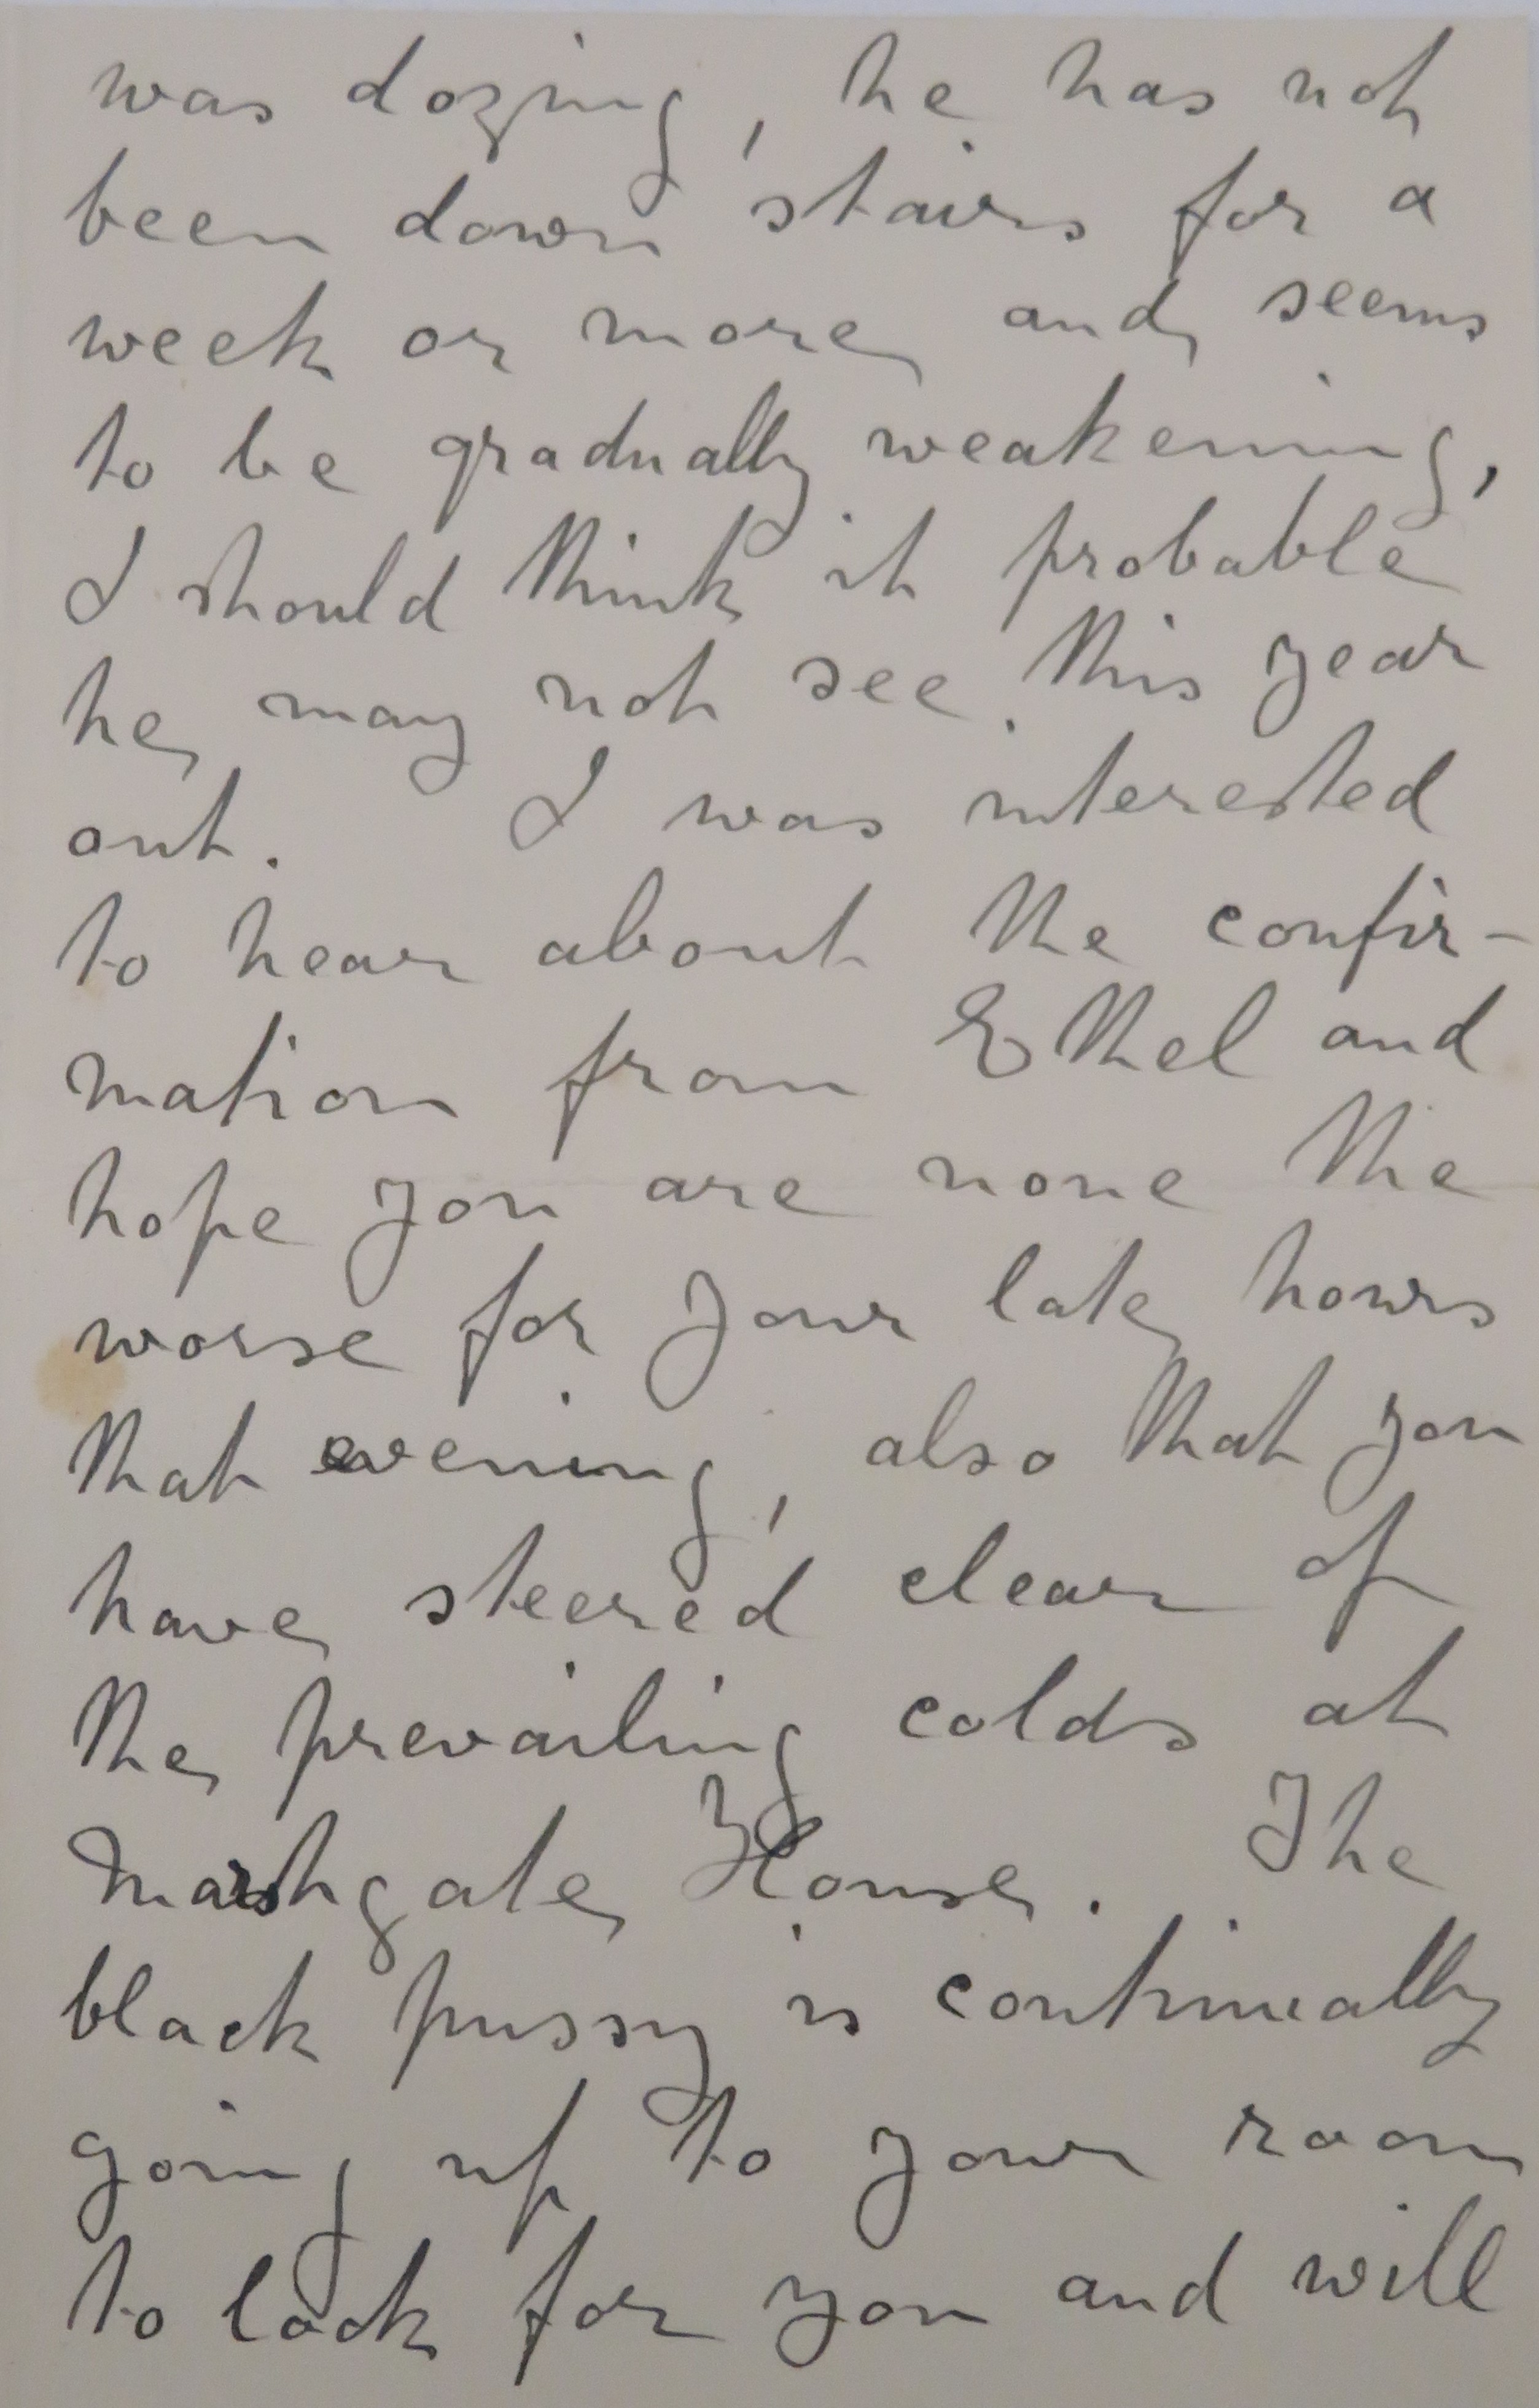 was dozing, he has not
been down stairs for a
week or more and seems
to be gradually weakening,
I should think it probable
he may not see this year
out. I was interested
to hear about the confir-
mation from Ethel and
hope you are none the
worse for your late hours
that evening, also that you
have steered clear of
the prevailing colds at
Marshgate House. The
black pussy is continually
going up to your room
to look for you and will